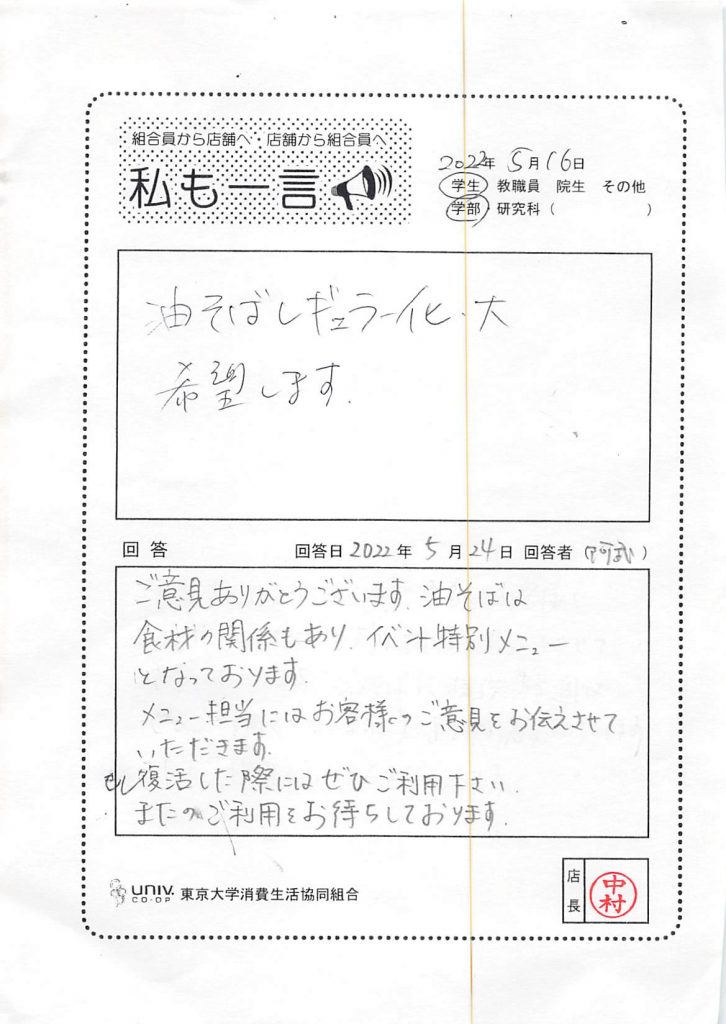 組合員から店舗へ・店舗から組合員へ
私も一言
2022年 5月16日
学生 教職員 院生 その他
学部・研究科( )
油そばレギュラー化・大
希望します.
回答 回答日2022年 5月24日 回答者(阿武)
ご意見ありがとうございます.油そばは
食材の関係もあり.イベント特別メニュー
となっております.
メニュー担当にはお客様のご意見をお伝えさせて
いただきます.
もし復活した際にはぜひご利用下さい.
またのご利用をお待ちしております.
UNIV. CO-OP 東京大学消費生活協同組合
店長 中村